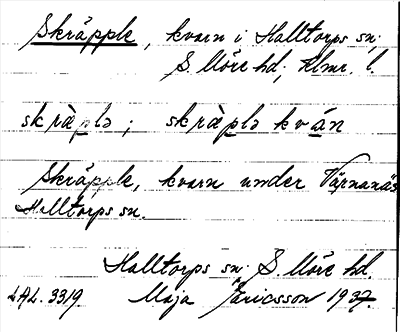 Skräpple, kvarn i Halltorps sn;
S. Möre hd, Klmr. l.
skràplə; skràplə kván
Skräpple, kvarn under Värnanäs
Halltorps sn.
Halltorps sn; S. Möre hd.
LAL. 3319. Maja Ericsson 1937.